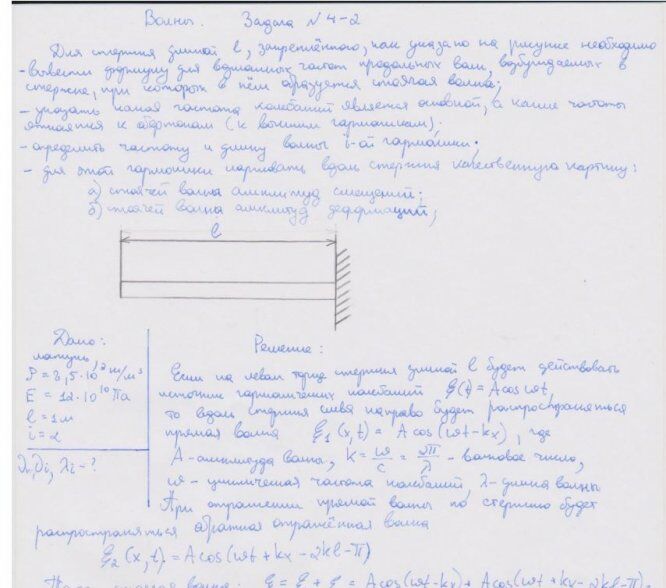 Волны. Задача №4-2
Для стержня длиной l, закреплённого, как указано на рисунке необходимо
- вывести формулу для возможных частот продольных волн, возбуждаемых в
стержне, при которых в нём образуется стоячая волна;
- указать какая частота колебаний является основной, а какие частоты
относятся к обертонам (к высшим гармоникам).
- определить частоту и длину волны i-ой гармоники.
- для этой гармоники нарисовать вдоль стержня качественную картину:
а) стоячей волны амплитуд смещений;
б) стоячей волны амплитуд деформаций;
l
Дано:
латунь
ρ = 8,5·10³ кг/м³
E = 12·10¹⁰ Па
l = 1 м
i = 2
λi - ?
Решение:
Если на левом торце стержня длиной l будет действовать
источник гармонических колебаний ξ(t) = A cos ωt,
то вдоль стержня слева направо будет распространяться
прямая волна ξ₁(x,t) = A cos(ωt - kx), где
A - амплитуда волны, k = ω/c = 2π/λ - волновое число,
ω - циклическая частота колебаний, λ - длина волны
При отражении прямой волны по стержню будет
распространяться обратная отражённая волна
ξ₂(x,t) = A cos(ωt + kx - 2kl - π)
волна: ξ = ξ + ξ = A cos(ωt - kx) + A cos(ωt + kx - 2kl - π) =